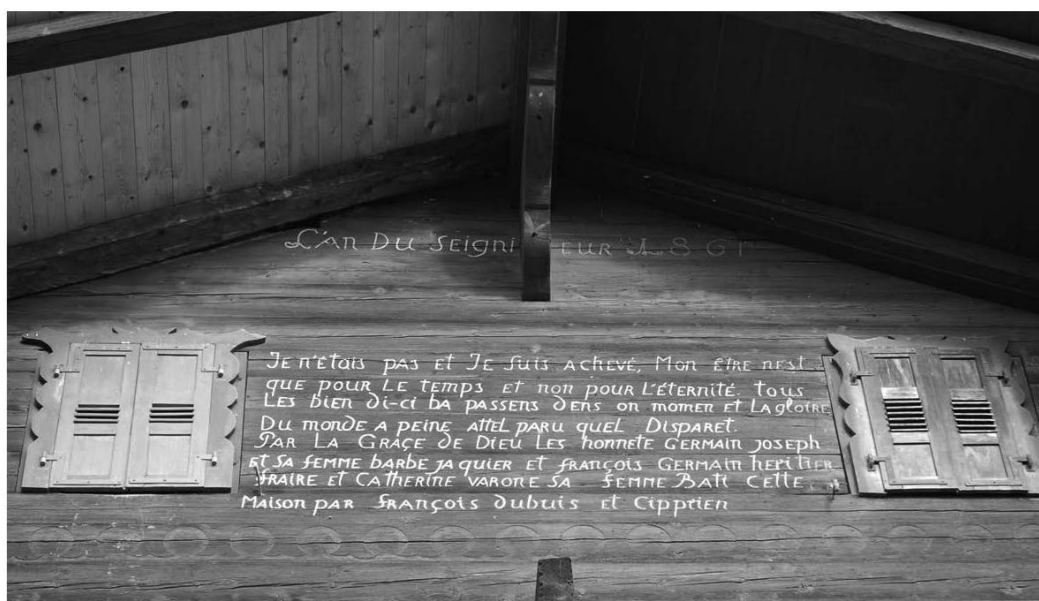 L'AN DU SEIGNEUR 1861
Je n'étais pas et Je suis achevé, Mon être nest
que pour le temps et non pour l'éternité. tous
les bien di-ci ba passens dens on momen et la gloire
Du monde a peine attel paru quel Disparet.
Par la Graçe de Dieu les honnete Germain Joseph
et sa femme barbe jaquier et françois Germain heritier
fraire et Catherine varone sa femme Bati cette
Maison par françois dubuis et Cipprien